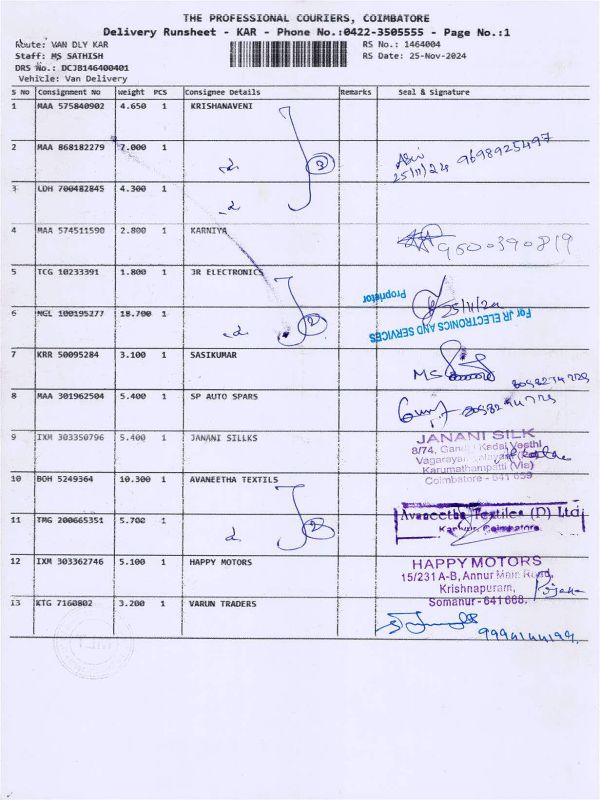 THE PROFESSIONAL COURIERS, COIMBATORE
Delivery Runsheet - KAR - Phone No.:0422-3505555 - Page No.:1
Route: VAN DLY KAR
RS No.: 1464004
Staff: MS SATHISH
RS Date: 25-Nov-2024
DRS No.: DCJB146400401
Vehicle: Van Delivery
S No Consignment No Weight PCS Consignee Details Remarks Seal & Signature
1 MAA 575840902 4.650 1 KRISHANAVENI
2 MAA 868182279 7.000 1
25/11/24 9698925497
3 LDH 700482845 4.300 1
4 MAA 574511590 2.800 1 KARNIYA
5 TCG 10233391 1.800 1 JR ELECTRONICS
25/11/24
For JR ELECTRONICS AND SERVICES
Proprietor
6 NGL 100195277 18.700 1
7 KRR 50095284 3.100 1 SASIKUMAR
MS
8 MAA 301962504 5.400 1 SP AUTO SPARS
9 IXM 303350796 5.400 1 JANANI SILLKS
JANANI SILK
8/74, Gandhi Kadai Veethi
Karumathampatti (Via)
Coimbatore - 641 659
10 BOH 5249364 10.300 1 AVANEETHA TEXTILS
Avaneetha Textiles (P) Ltd
Coimbatore.
11 TMG 200665351 5.700 1
12 IXM 303362746 5.100 1 HAPPY MOTORS
HAPPY MOTORS
15/231 A-B, Annur Main Road,
Krishnapuram,
Somanur - 641 668.
13 KTG 7160802 3.200 1 VARUN TRADERS